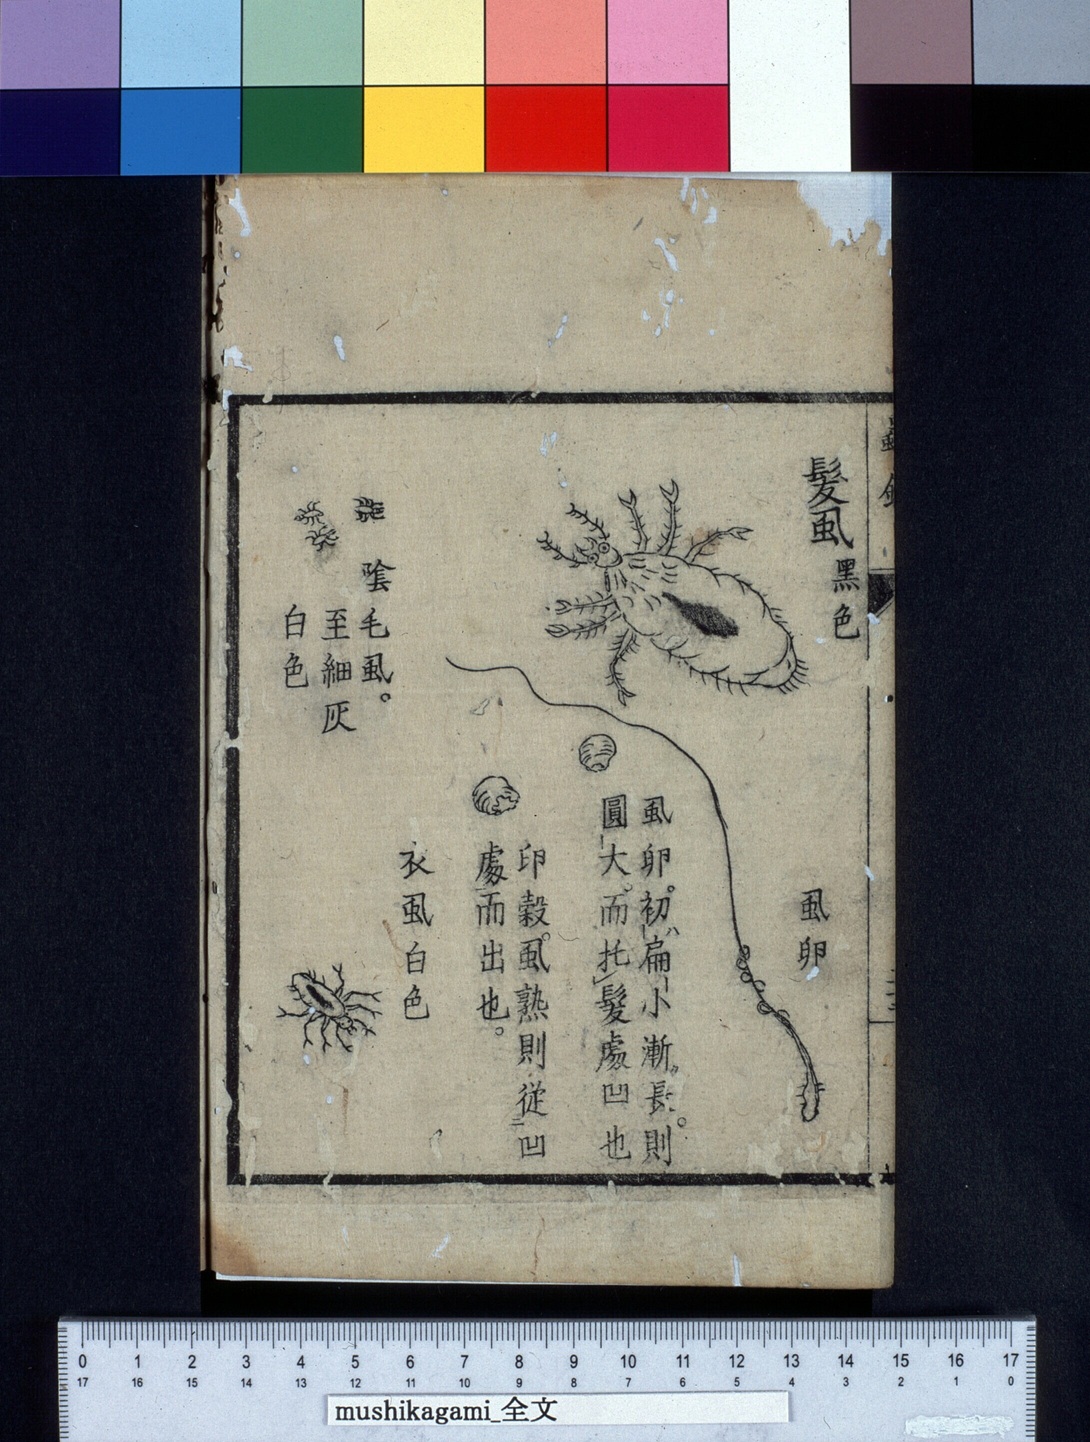 髮虱 黑色
虱卵
虱卵初ハ扁小漸長則
圓大而托髮處凹也
印殼虱熟則從凹
處而出也。
衣虱白色
陰毛虱。
至細灰
白色
0 1 2 3 4 5 6 7 8 9 10 11 12 13 14 15 16 17
17 16 15 14 13 12 11 10 9 8 7 6 5 4 3 2 1 0
mushikagami_全文